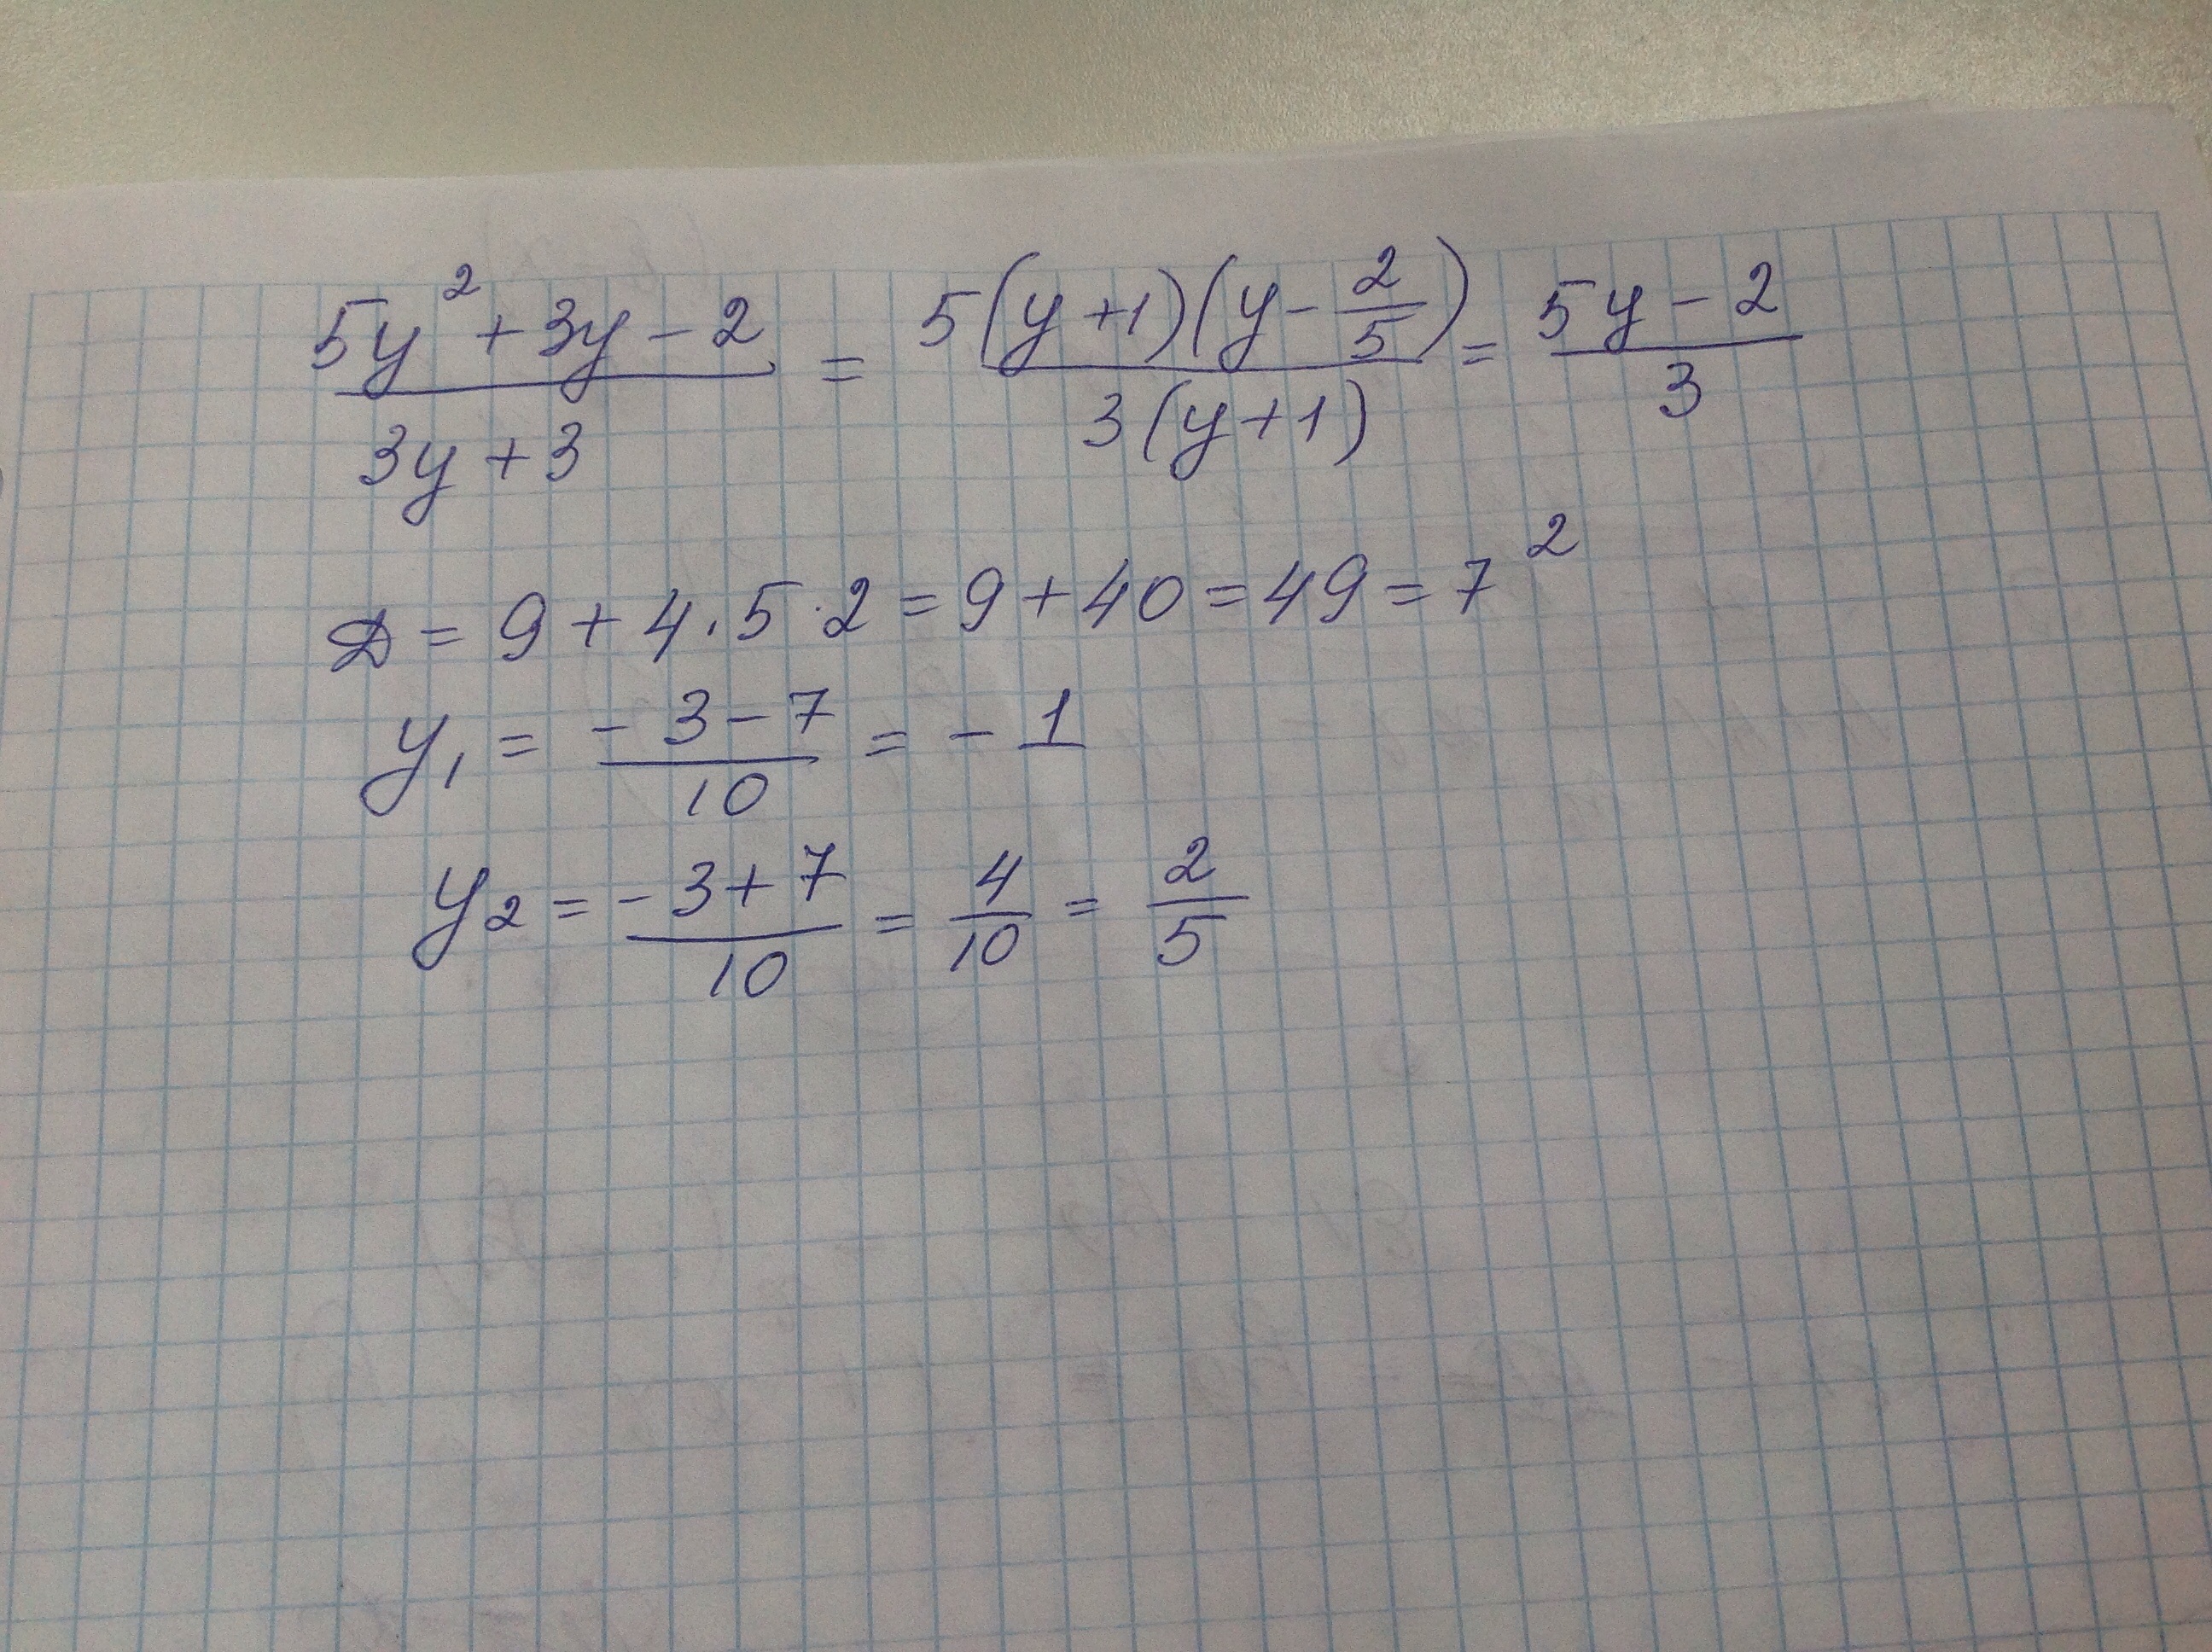 (5y² + 3y - 2)/(3y + 3) = 5(y + 1)(y - 2/5)/3(y + 1) = (5y - 2)/3
D = 9 + 4 · 5 · 2 = 9 + 40 = 49 = 7²
y₁ = (-3 - 7)/10 = -1
y₂ = (-3 + 7)/10 = 4/10 = 2/5